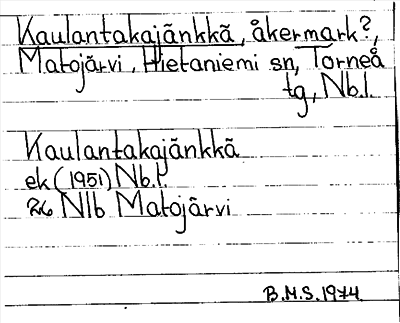 Kaulantakajänkkä, åkermark?,
Matojärvi, Hietaniemi sn, Torneå
tg, Nb.l.
Kaulantakajänkkä
ek (1951) Nb.l.
26 Nlb Matojärvi
B.M.S. 1974